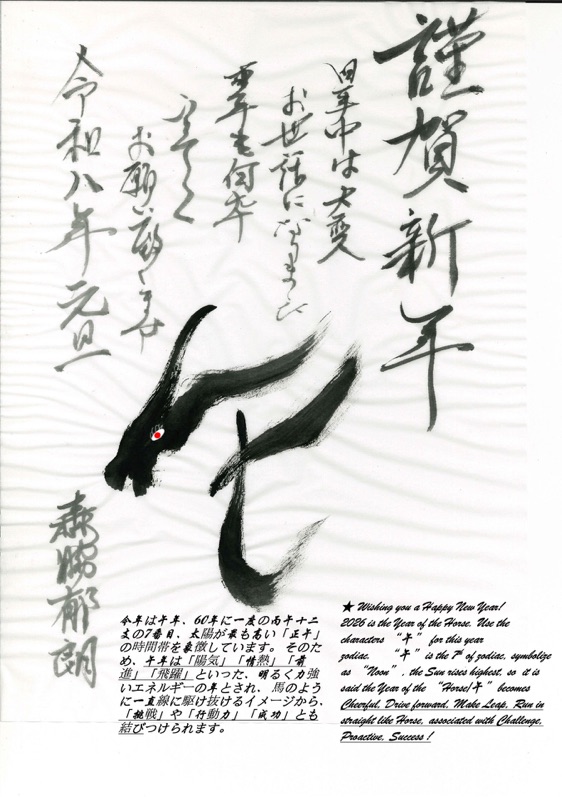 謹賀新年
旧年中は大変
お世話になりました
本年も何卒
よろしく
お願い致します
令和八年元旦
郁朗
今年は午年、60年に一度の丙午十二
支の7番目、太陽が最も高い「正午」
の時間帯を象徴しています。そのた
め、午年は「陽気」「情熱」「前
進」「飛躍」といった、明るく力強
いエネルギーの年とされ、馬のよう
に一直線に駆け抜けるイメージから、
「挑戦」や「行動力」「成功」とも
結びつけられます。
★ Wishing you a Happy New Year!
2026 is the Year of the Horse. Use the
characters “午” for this year
zodiac. “午” is the 7th of zodiac, symbolize
as “Noon”, the Sun rises highest, so it is
said the Year of the “Horse/午” becomes
Cheerful, Drive forward, Make Leap, Run in
straight like Horse, associated with Challenge,
Proactive, Success!